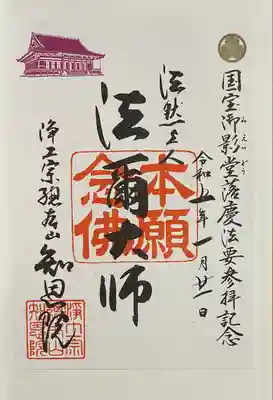 国宝御影堂落慶法要参拝記念
みえいどう
令和五年一月廿一日
法然上人
法爾大師
本願
念佛
浄土宗總本山
知恩院